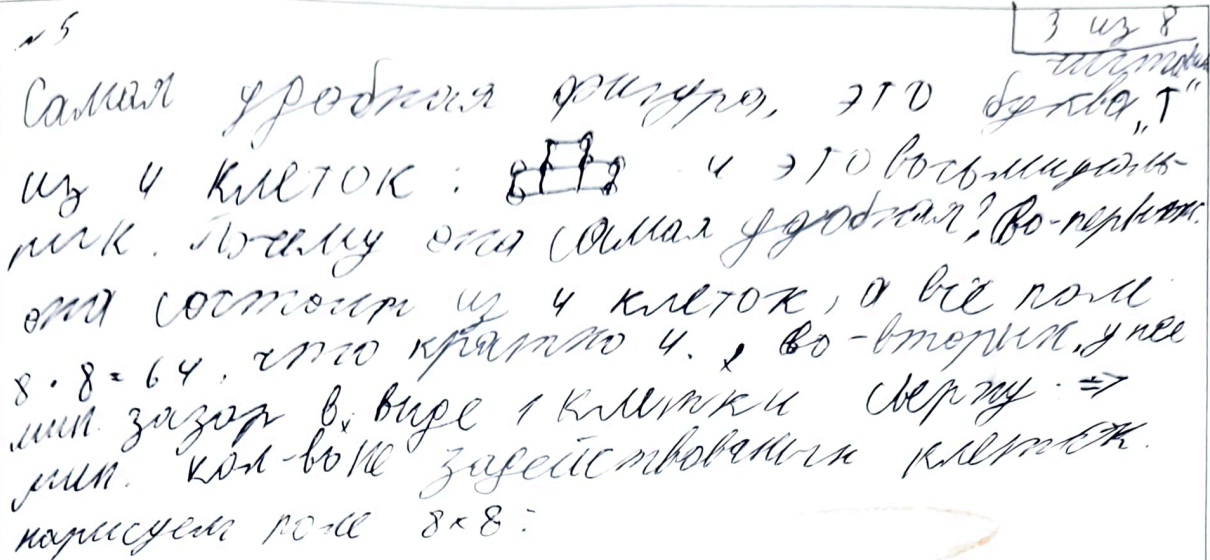 № 5
3 из 8
чистовик
Самая удобная фигура, это буква „Т“
из 4 клеток: и это восьмиуголь-
ник. Почему она самая удобная? Во-первых.
она состоит из 4 клеток, а всё поле
8 · 8 = 64, что кратно 4. , во-вторых, у неё
мин. зазор в виде 1 клетки сверху. ⇒
мин. кол-во не задействованых клеток.
нарисуем поле 8×8: